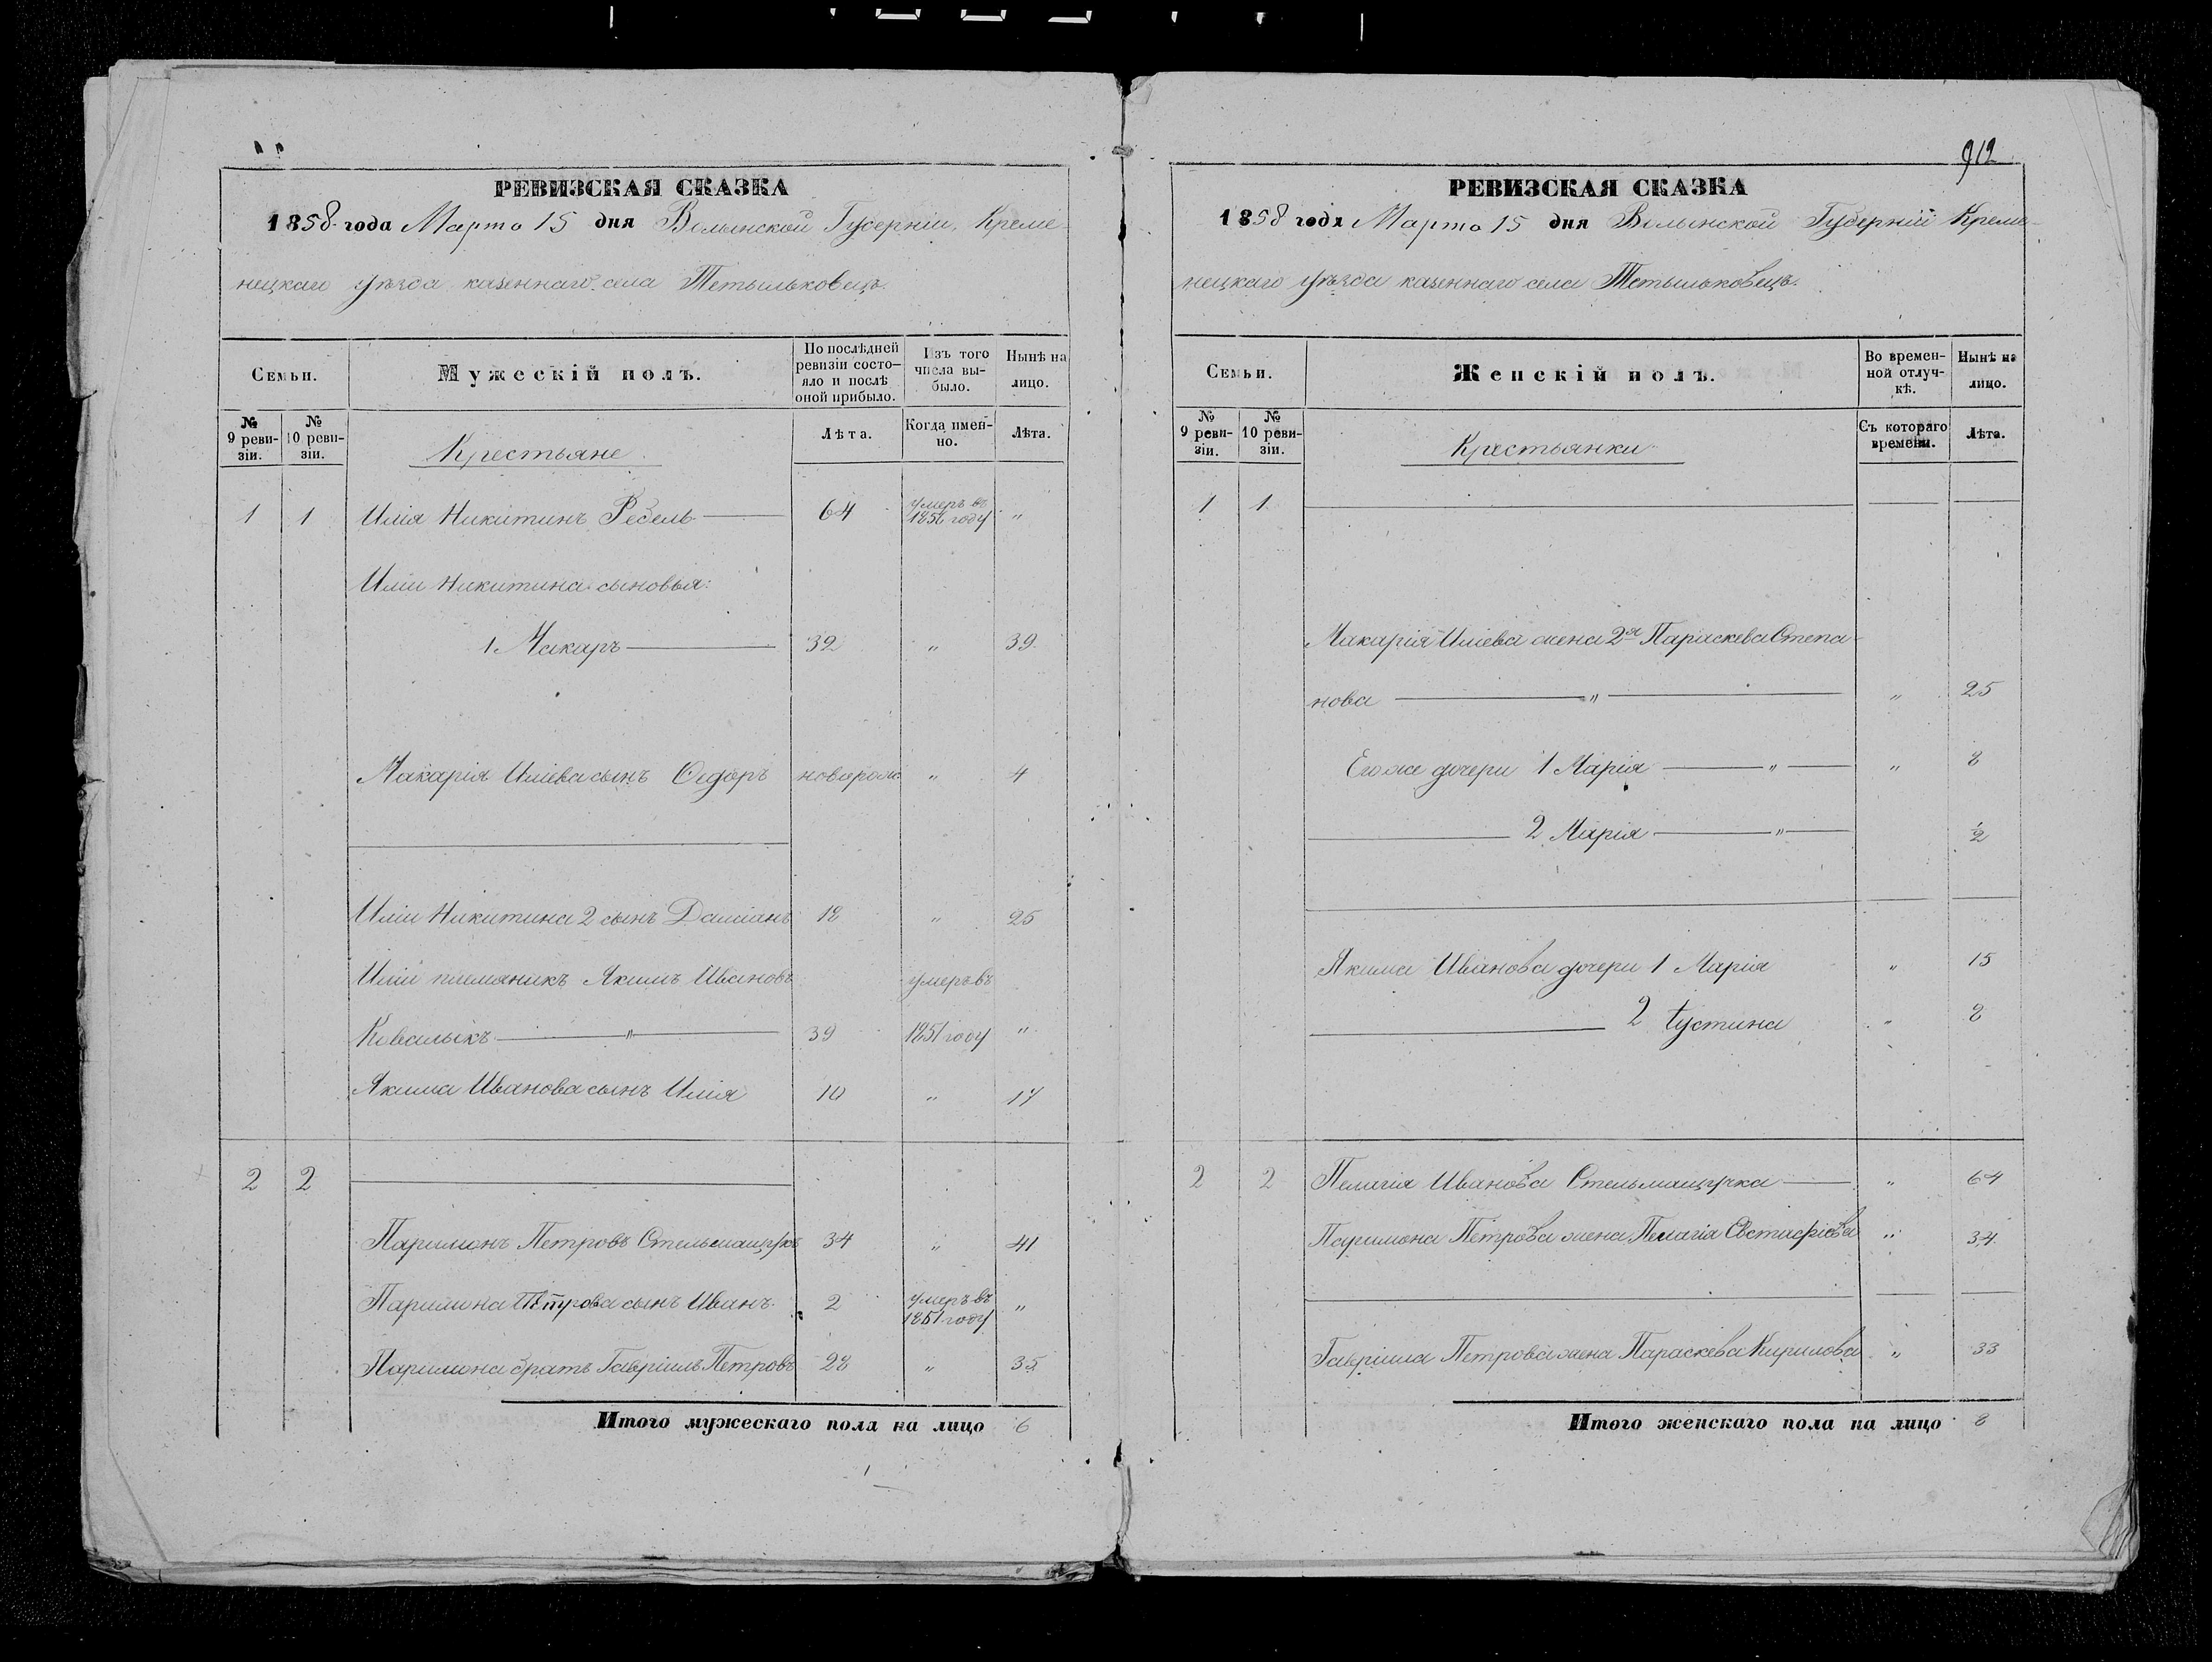 РЕВИЗСКАЯ СКАЗКА
1858 года Марта 15 дня Волынской Губерніи, Креме-
нецкаго уѣзда казеннаго села Тетыльковецъ.
Семьи.
Мужескій полъ.
По послѣдней ревизіи состо-яло и послѣ оной прибыло.
Изъ того числа вы-было.
Нынѣ на лицо.
№ 9 реви-зіи.
№ 10 реви-зіи.
Крестьяне
Лѣта.
Когда имен-но.
Лѣта.
1 1 Илія Никитинъ 64 умеръ въ 1856 году "
Иліи Никитина сыновья:
1 Макаръ 32 " 39
Макарія Иліева сынъ Ѳедоръ новорож " 4
Иліи Никитина 2 сынъ Даміанъ 18 " 25
Иліи племяникъ Якимъ Ивановъ умеръ въ
Ковалыкъ " 39 1851 году "
Якима Иванова сынъ Илія 10 " 17
2 2
Паримонъ Петровъ Стельмащукъ 34 " 41
Паримона Петрова сынъ Иванъ 2 умеръ въ 1851 году "
Паримона братъ Гавріилъ Петровъ 28 " 35
Итого мужескаго пола на лицо 6
912
РЕВИЗСКАЯ СКАЗКА
1858 года Марта 15 дня Волынской Губерніи Креме-
нецкаго уѣзда казеннаго села Тетыльковецъ.
Семьи.
Женскій полъ.
Во времен-ной отлуч-кѣ.
Нынѣ на лицо.
№ 9 реви-зіи.
№ 10 реви-зіи.
Крестьянки
Съ котораго времени.
Лѣта.
1 1
Макарія Иліева жена 2я Параскева Степа-
нова " " 25
Его же дочери 1 Марія " " 8
2 Марія " 1/2
Якима Иванова дочери 1 Марія " 15
2 Іустина " 8
2 2 Пелагія Иванова Стельмащучка " 64
Паримона Петрова жена Пелагія Евстафіева " 34
Гавріила Петрова жена Параскева Кирилова " 33
Итого женскаго пола на лицо 8